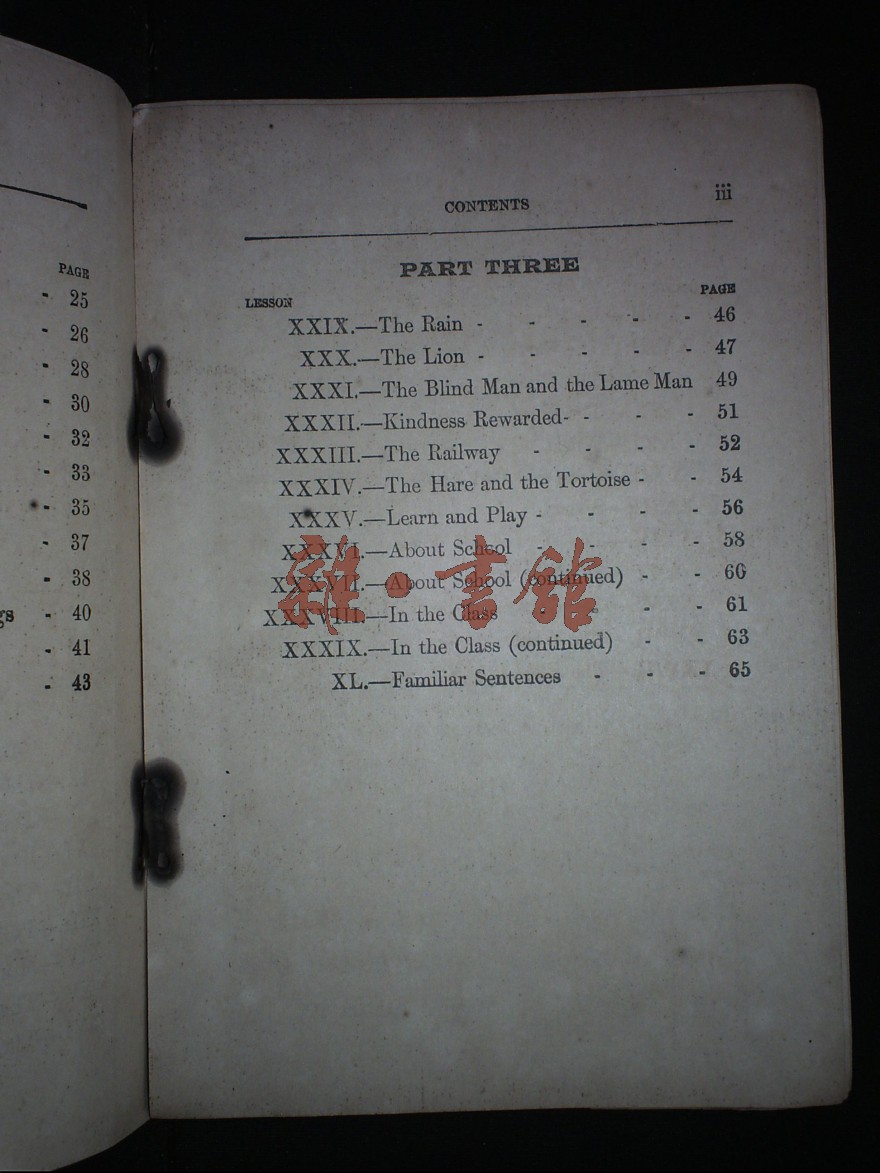 PAGE
- 25
- 26
- 28
- 30
- 32
- 33
- 35
- 37
- 38
gs - 40
- 41
- 43
CONTENTS iii
PART THREE
LESSON PAGE
XXIX.—The Rain - - - - - 46
XXX.—The Lion - - - - - 47
XXXI.—The Blind Man and the Lame Man 49
XXXII.—Kindness Rewarded- - - - 51
XXXIII.—The Railway - - - - 52
XXXIV.—The Hare and the Tortoise - - 54
XXXV.—Learn and Play - - - - 56
XXXVI.—About School - - - - 58
XXXVII.—About School (continued) - - 60
XXXVIII.—In the Class - - - 61
XXXIX.—In the Class (continued) - - 63
XL.—Familiar Sentences - - - 65
雜·書館